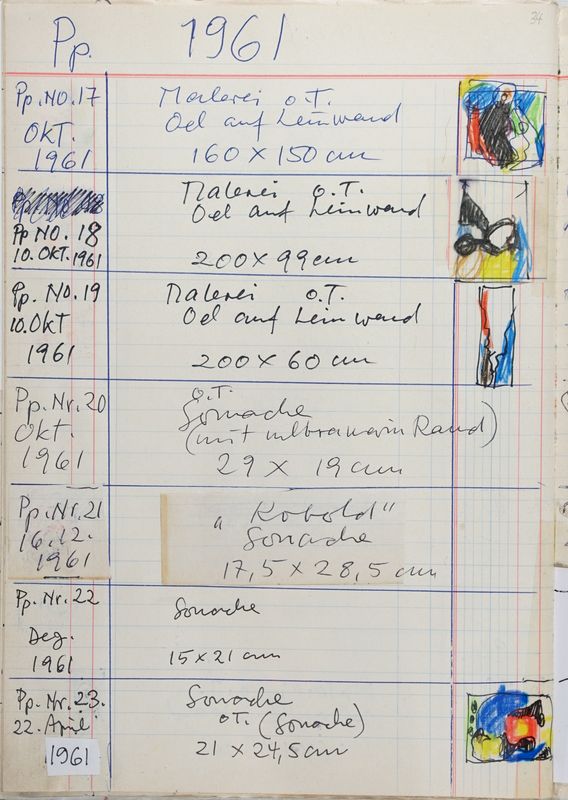 34
Pp. 1961
Pp. NO. 17
OKT.
1961
Malerei o.T.
Oel auf Leinwand
160 x 150 cm
Pp NO. 18
10. OKT. 1961
Malerei O.T.
Oel auf Leinwand
200 x 99 cm
Pp. NO. 19
10. OKT
1961
Malerei O.T.
Oel auf Leinwand
200 x 60 cm
Pp. Nr. 20
OKT.
1961
O.T.
Gouache
(mit ultramarin Rand)
29 x 19 cm
Pp. Nr. 21
16.12.
1961
„Kobold"
Gouache
17,5 x 28,5 cm
Pp. Nr. 22
Dez.
1961
Gouache
15 x 21 cm
Pp. Nr. 23.
22. April
1961
Gouache
O.T. (Gouache)
21 x 24,5 cm